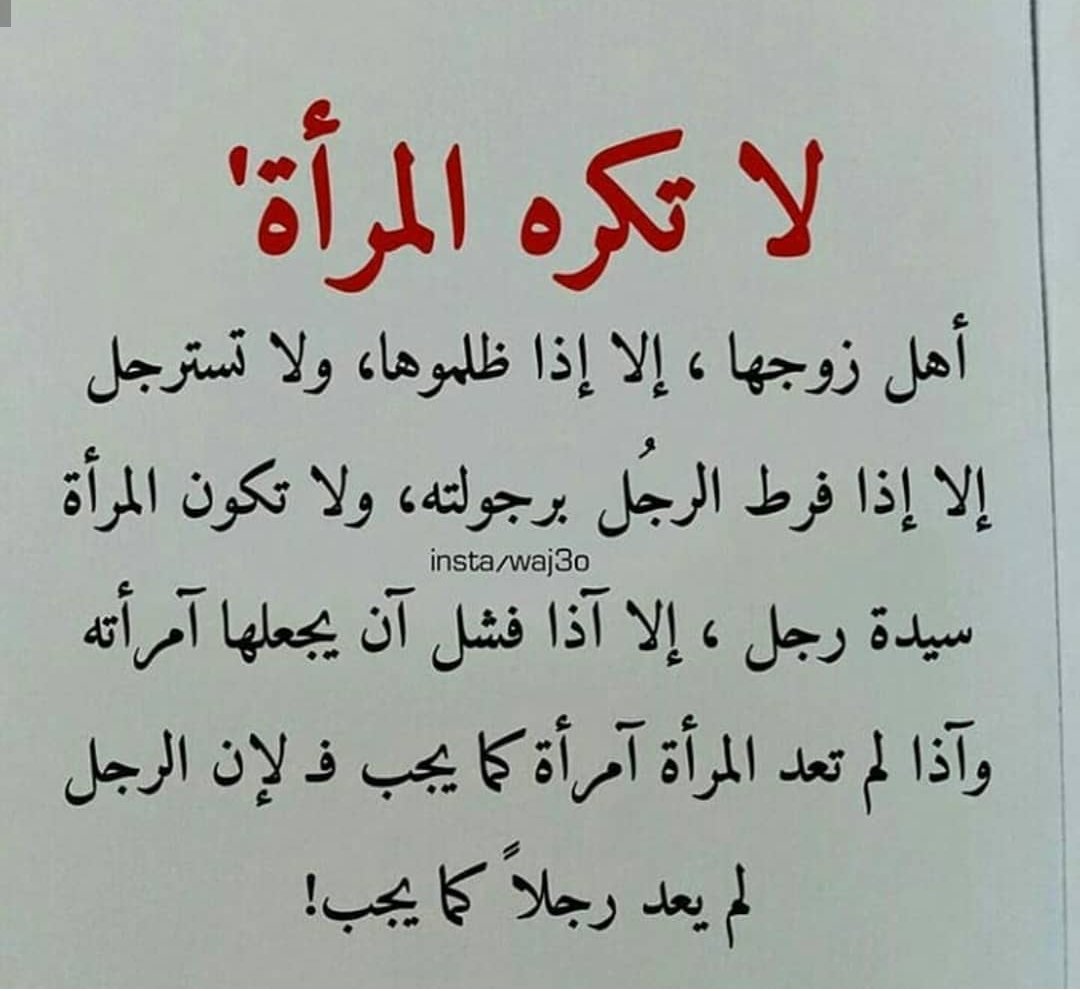 لا تكره المرأة'
أهل زوجها ، إلا إذا ظلموها، ولا تسترجل
إلا إذا فرط الرجُل برجولته، ولا تكون المرأة
insta/waj3o
سيدة رجل ، إلا آذا فشل آن يجعلها آمرأته
وآذا لم تعد المرأة آمرأة كما يجب فـ لإن الرجل
لم يعد رجلاً كما يجب!